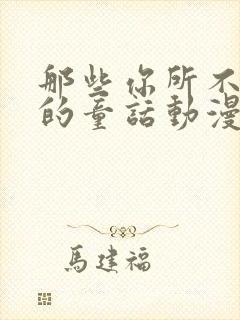 那些你所不
的童話動漫
馬建福